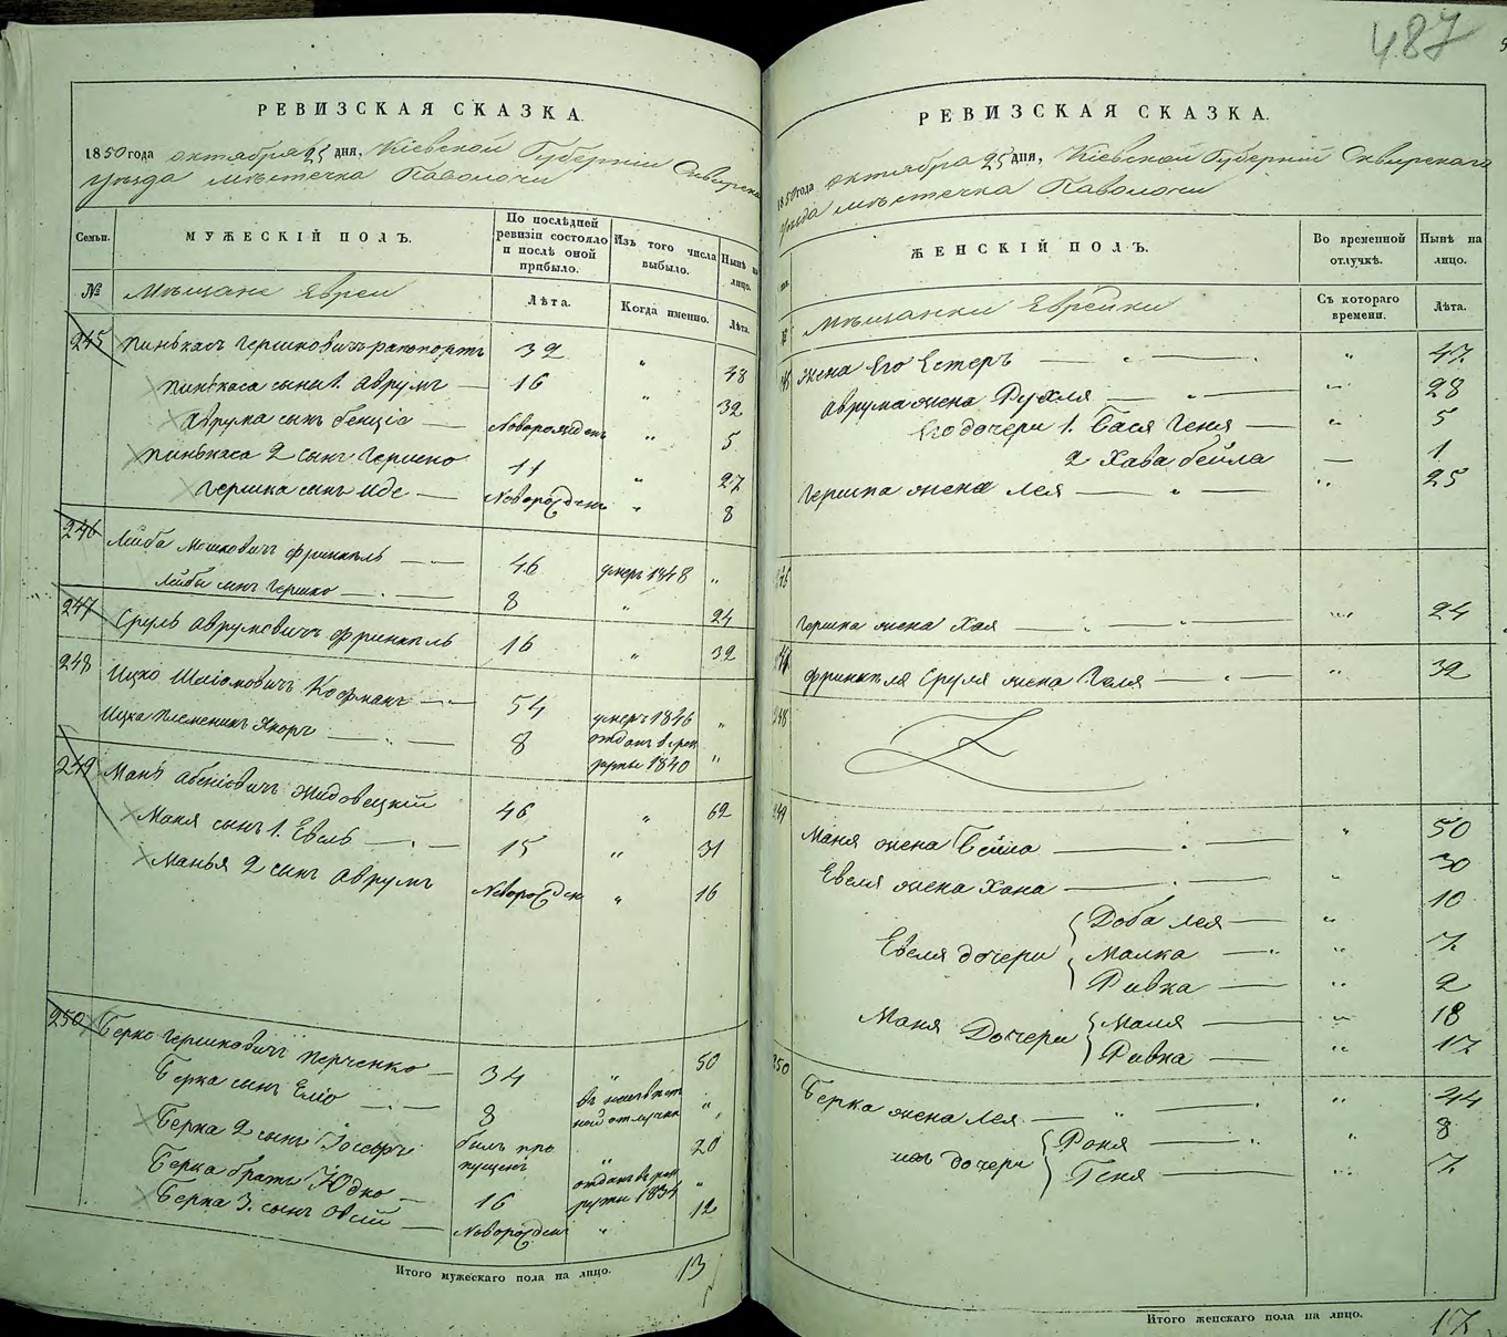 487
РЕВИЗСКАЯ СКАЗКА.
1850 года октября 25 дня, Кіевской Губерніи Сквирскаго
уѣзда мѣстечка Паволочи
Семьи. МУЖЕСКІЙ ПОЛЪ. По послѣдней ревизіи состояло и послѣ оной прибыло. Изъ того числа выбыло. Нынѣ на лицо.
№ Мѣщане Евреи Лѣта. Когда именно. Лѣта.
245 Пинькасъ Гершковичъ рапопортъ 32 „ 48
Пинькаса сынъ 1. Аврумъ — 16 „ 32
Аврума сынъ бенціо — Новорожденъ „ 5
Пинькаса 2 сынъ Гершко 11 „ 27
Гершка сынъ Иде — Новорожденъ „ 8
246 Лейба Мошковичъ френкель — 46 умеръ 1848 „
Лейбы сынъ Гершко — 8 „ 24
247 Сруль Аврумовичъ френкель 16 „ 32
248 Ицко Шліомовичъ Кофманъ — 54 умеръ 1846 „
Ицка племеникъ Янкоръ — 8 отданъ в рек
руты 1840 „
249 Мань Абеніовичъ Жидовецкій 46 „ 62
Маня сынъ 1. Евель — 15 „ 31
Манья 2 сынъ Аврумъ Новорожден „ 16
250 Берко Гершковичъ Перченко — 34 „ 50
Берка сынъ Еліо — 8 въ неизвѣст
ной отлучкѣ „
Берка 2 сынъ Іосефъ былъ про
пущенъ „ 20
Берка братъ Юдко — 16 отданъ в рек
руты 1834 „
Берка 3. сынъ Овсій — Новорожден „ 12
Итого мужескаго пола на лицо. 13
РЕВИЗСКАЯ СКАЗКА.
1850 года октября 25 дня, Кіевской Губерніи Сквирскаго
уѣзда мѣстечка Паволочи
ЖЕНСКІЙ ПОЛЪ. Во временной отлучкѣ. Нынѣ на лицо.
№ Мѣщанки Еврейки Съ котораго времени. Лѣта.
245 жена Его Естеръ — „ 47
Аврума жена Рухля — „ 28
Его дочери 1. Бася Геня — „ 5
2 Хава бейла — 1
Гершка жена Лея — „ 25
246
Гершка жена Хая — „ 24
247 френкеля Сруля жена Геля — „ 32
248
249 Маня жена Бейла — „ 50
Евеля жена Хана — „ 30
Доба Лея — „ 10
Евеля дочери Малка — „ 7
Ривка — „ 2
Маня Дочери Маля — „ 18
Ривка — „ 17
250 Берка жена Лея — „ 44
ихъ дочери Роня — „ 8
Геня — „ 7
Итого женскаго пола на лицо. 17